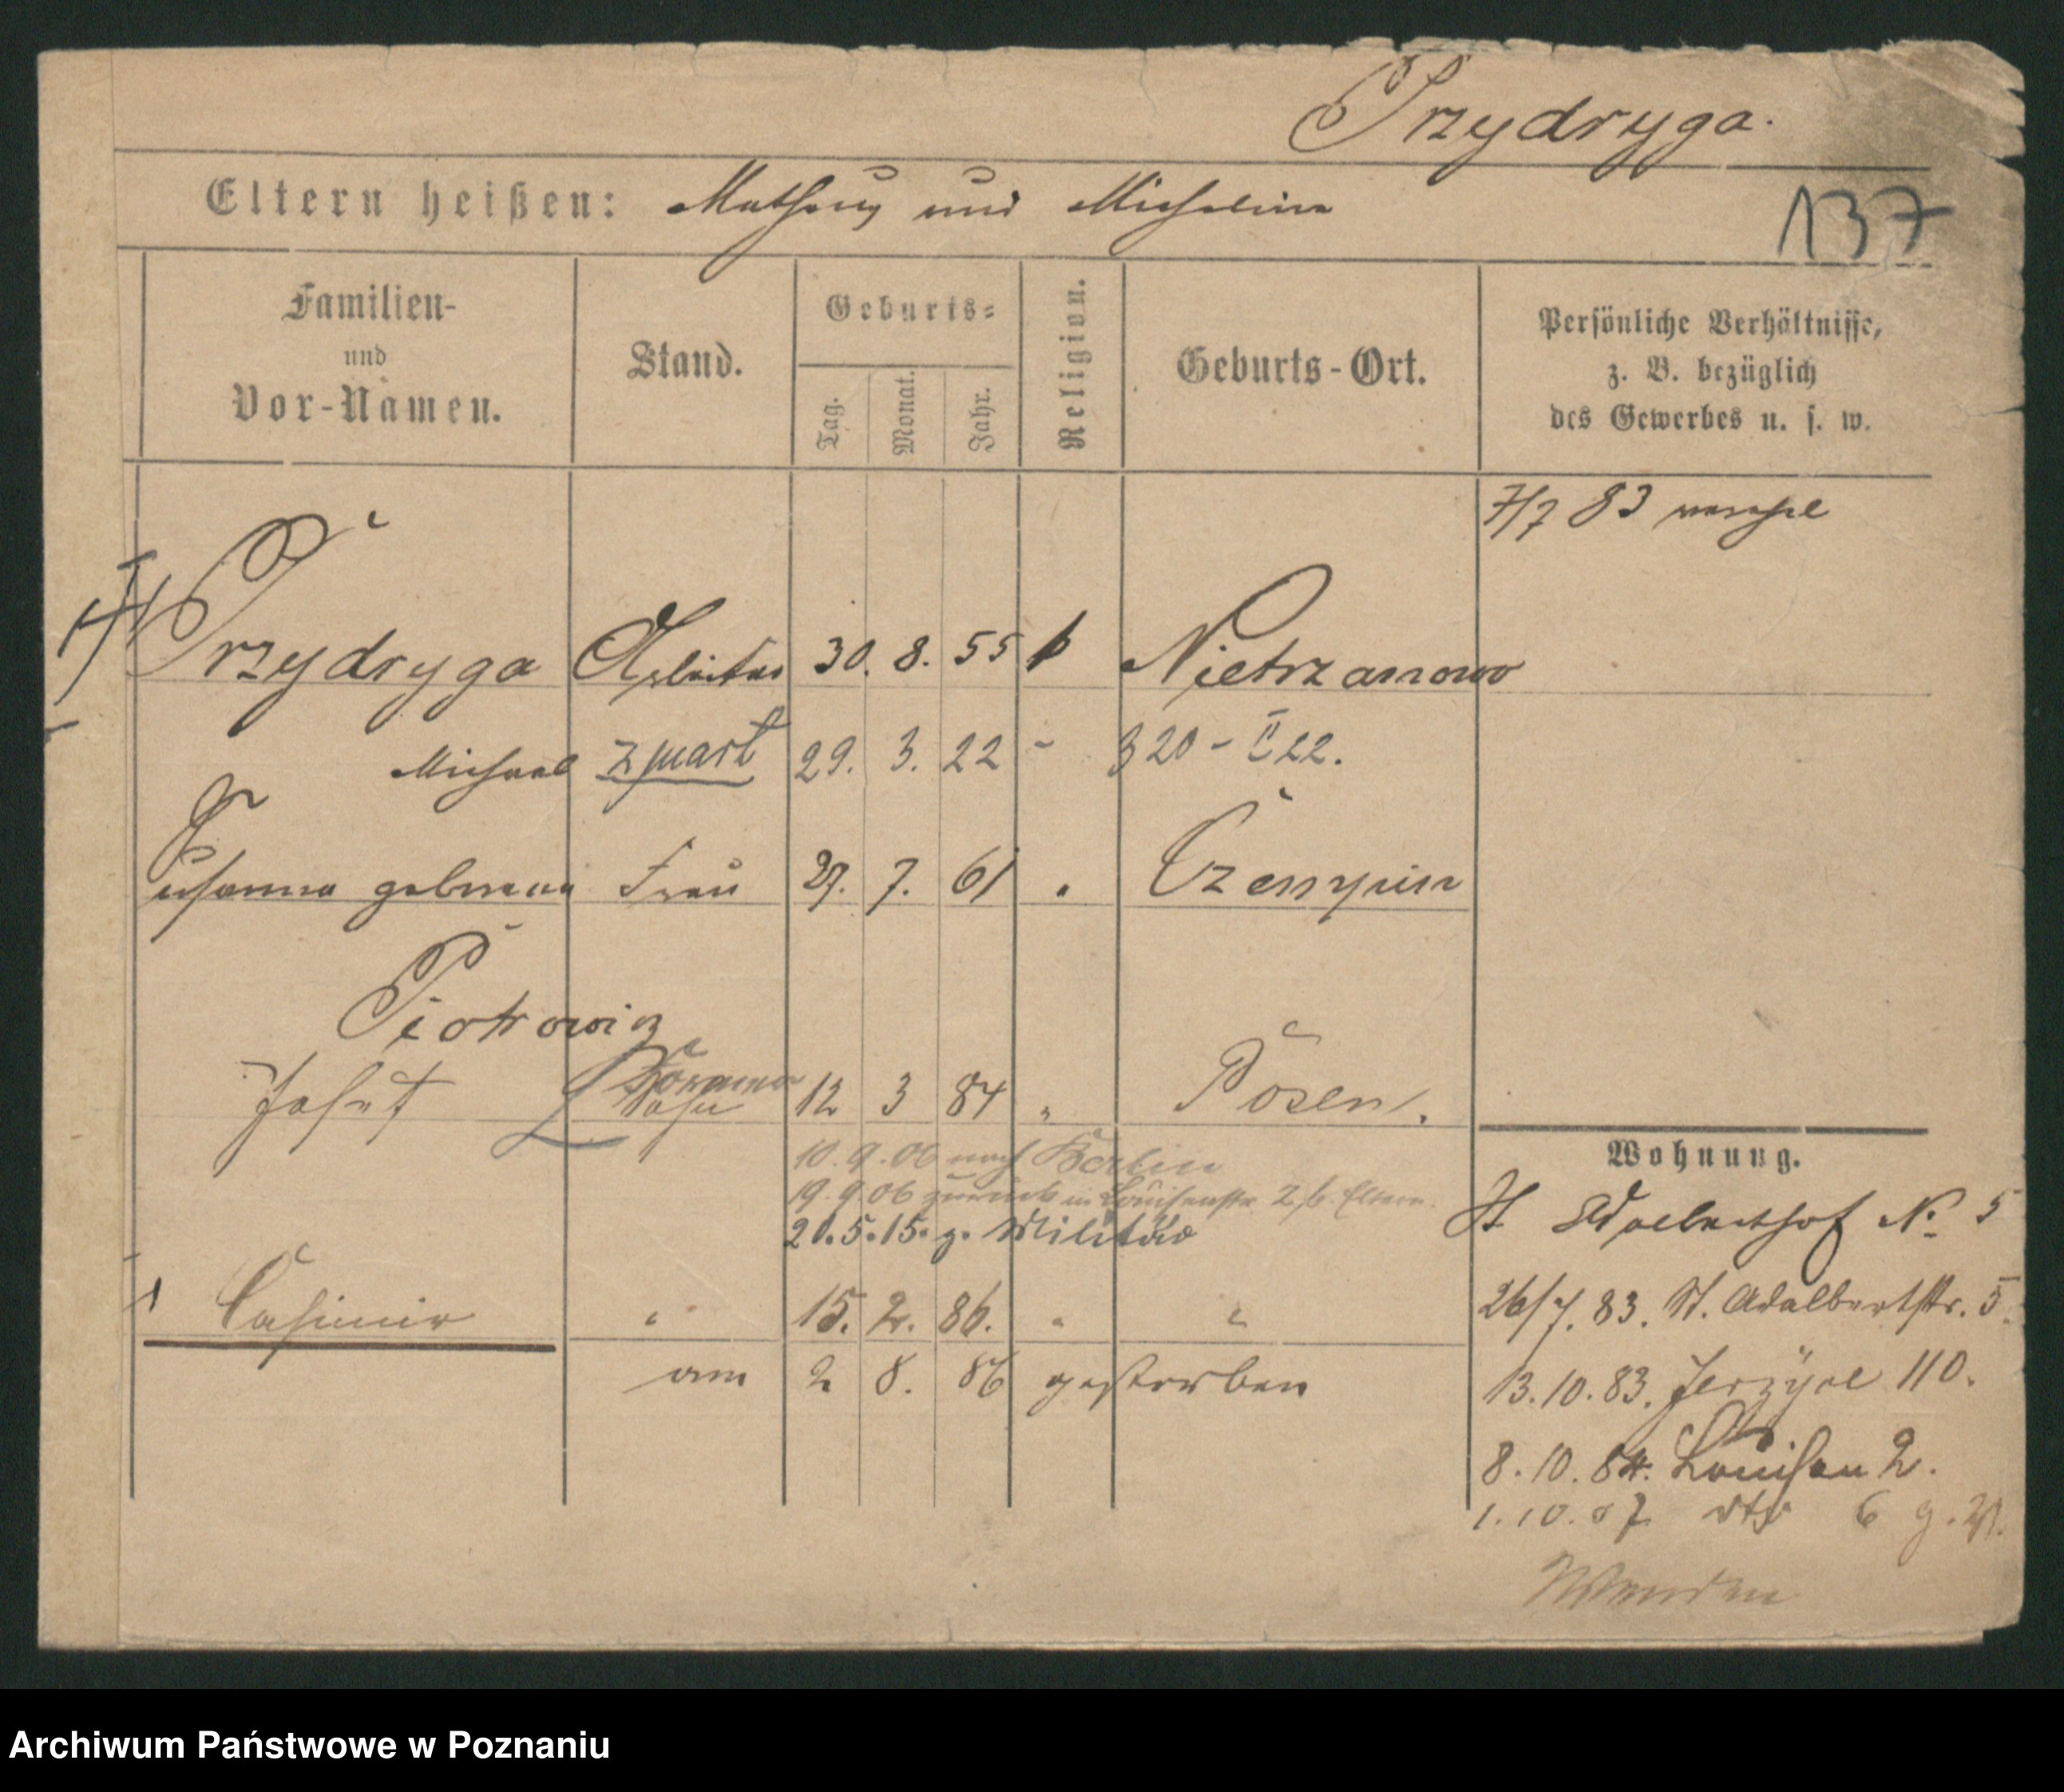 Przydryga.
Eltern heißen: Matheus und Michalina
137
Familien-
und
Vor-Namen.
Stand.
Geburts-
Tag.
Monat.
Jahr.
Religion.
Geburts-Ort.
Persönliche Verhältnisse,
z. B. bezüglich
des Gewerbes u. s. w.
7/7 83
Przydryga Arbeiter 30. 8. 55 k Nietrzanowo
Michael zmarł 29. 3. 22 - 320 - II 22.
Susanna geborene Frau 27. 7. 61 " Czempin
Piotrowicz
Josef Sohn 12 3 84 " Posen.
10.9.06 nach Berlin
19.9.06 zurück in Louisenstr. 2 b. Eltern.
20.5.15. z. Militär
Casimir " 15. 2. 86. " "
am 2 8. 86 gestorben
Wohnung.
St Adalberthof No 5
26/7. 83. St. Adalbertstr. 5.
13.10.83. Jerzyce 110.
8.10.84. Louisen 2.
1.10.07 dto 6
Wenden
Archiwum Państwowe w Poznaniu